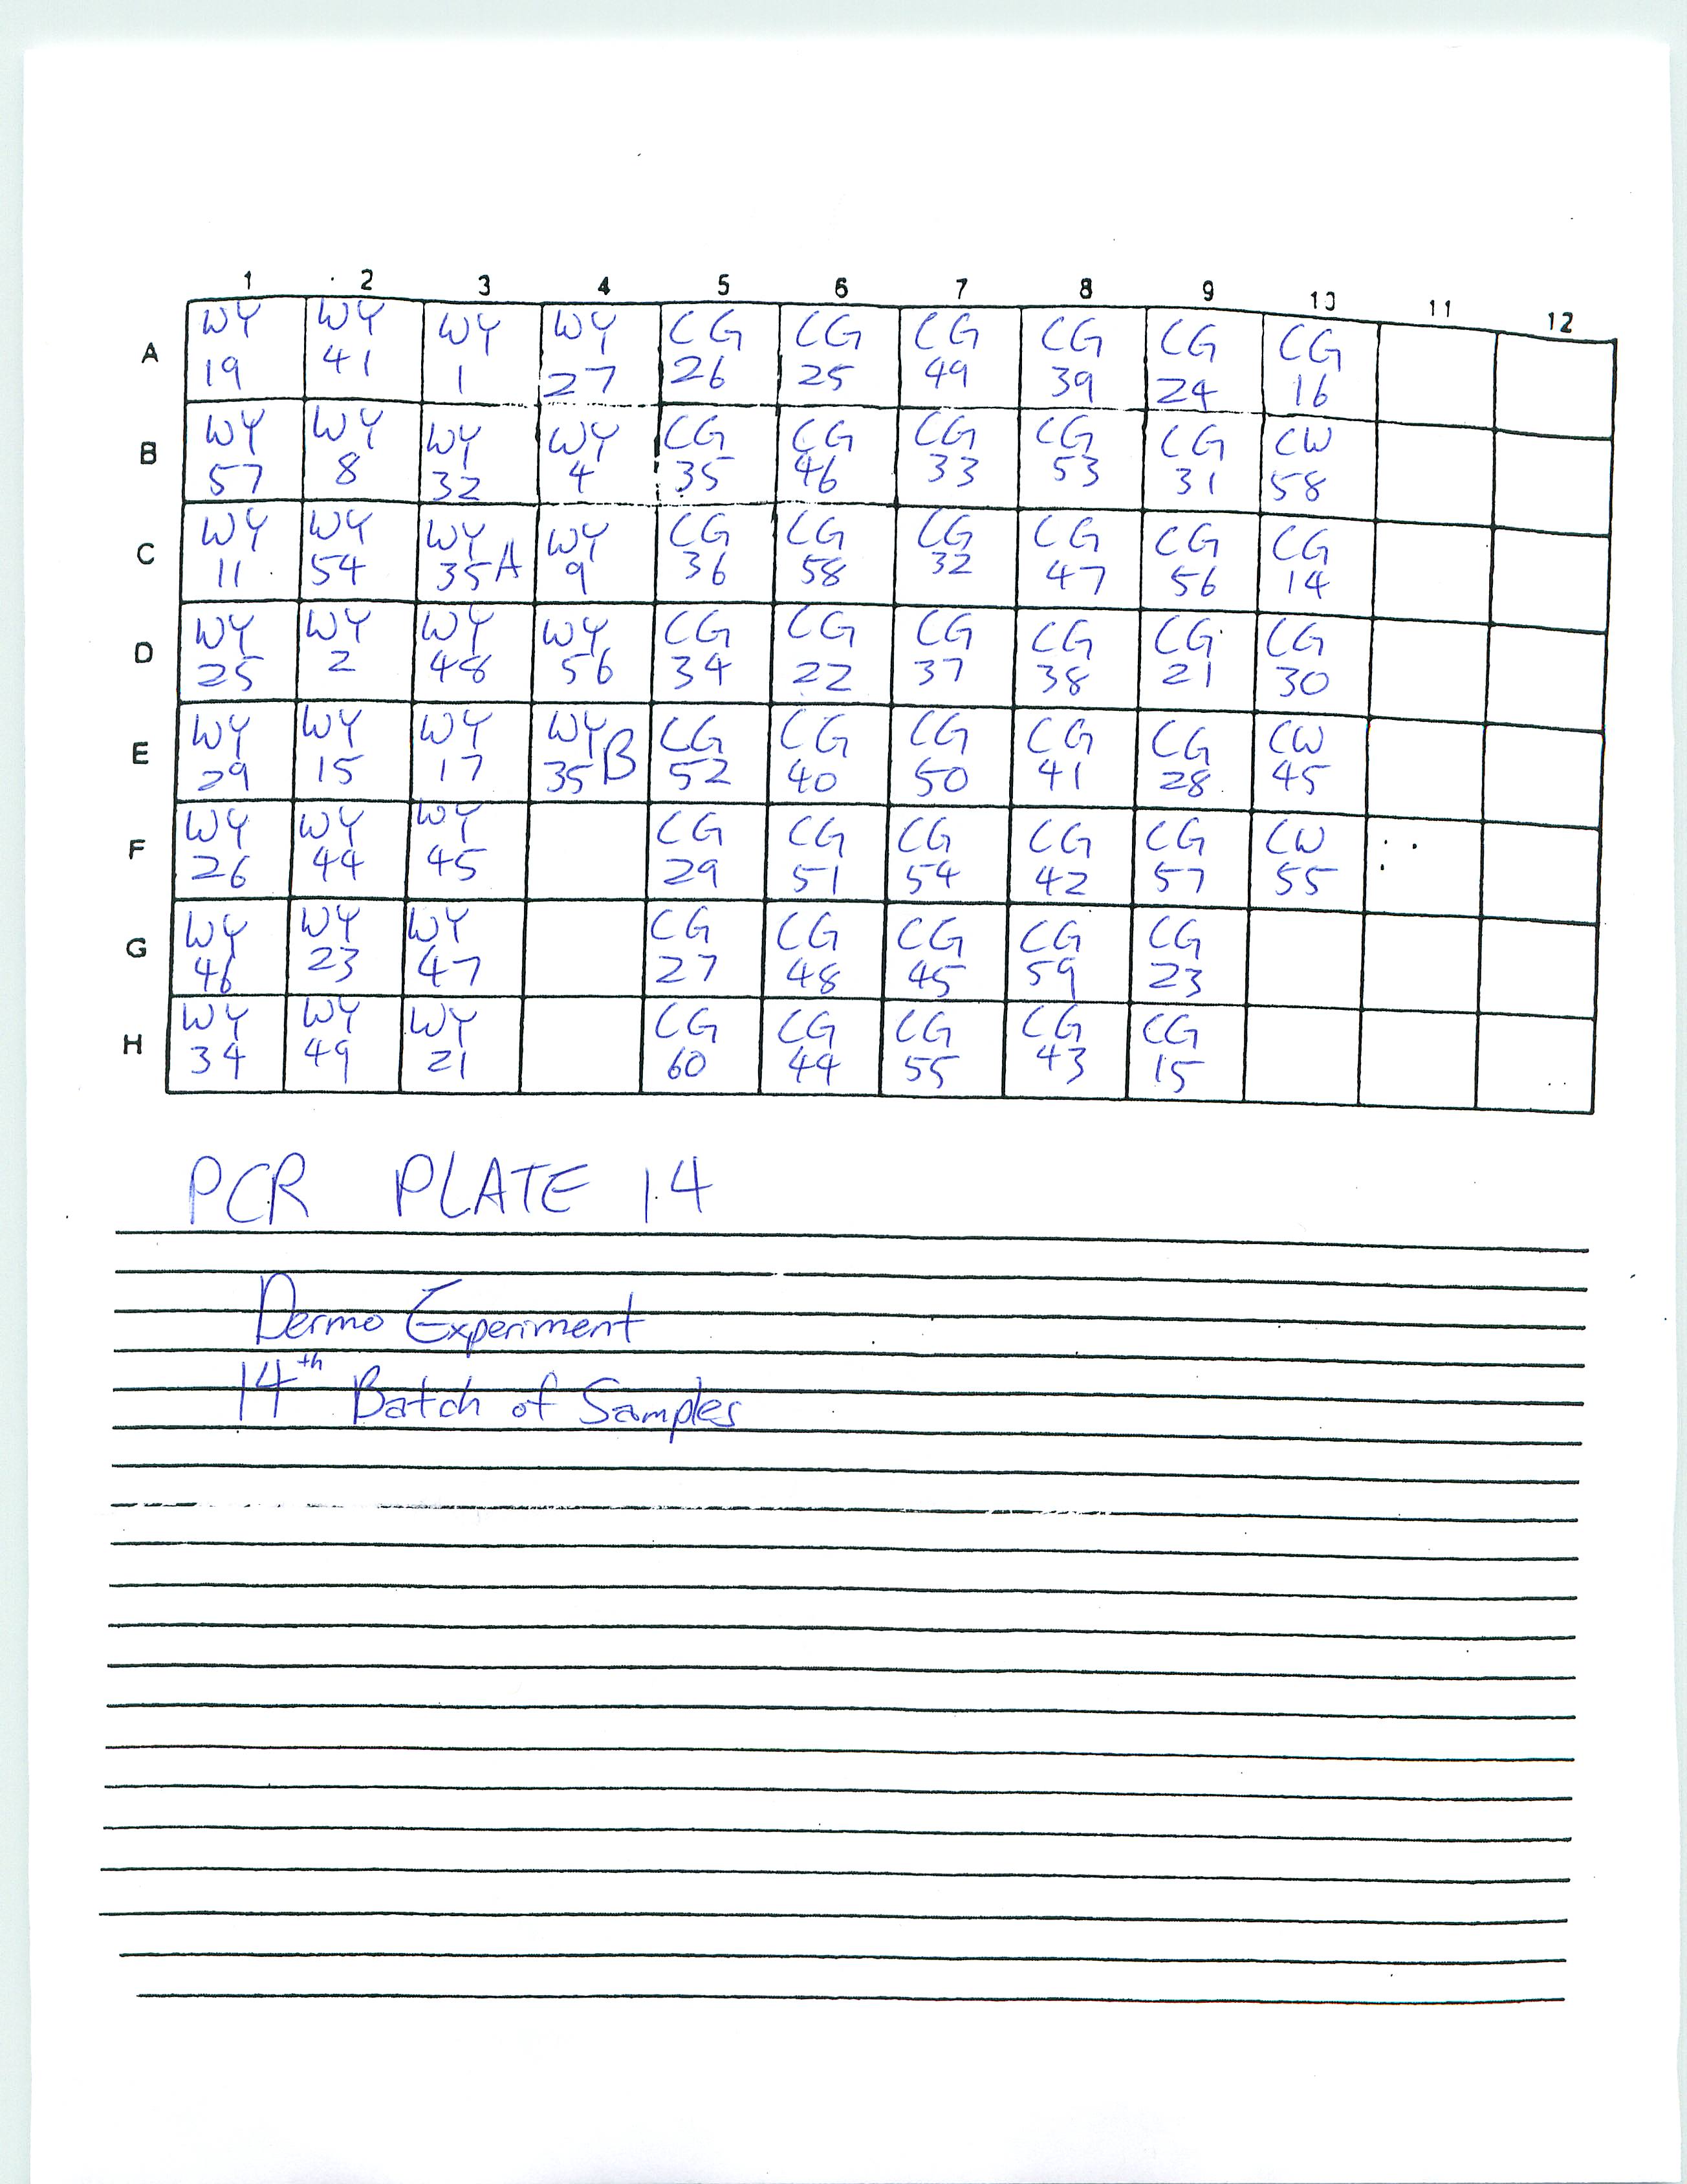 1 2 3 4 5 6 7 8 9 10 11 12
A WY 19 WY 41 WY 1 WY 27 CG 26 CG 25 CG 49 CG 39 CG 24 CG 16
B WY 57 WY 8 WY 32 WY 4 CG 35 CG 46 CG 33 CG 53 CG 31 CW 58
C WY 11 WY 54 WY 35A WY 9 CG 36 CG 58 CG 32 CG 47 CG 56 CG 14
D WY 25 WY 2 WY 48 WY 56 CG 34 CG 22 CG 37 CG 38 CG 21 CG 30
E WY 29 WY 15 WY 17 WY 35B CG 52 CG 40 CG 50 CG 41 CG 28 CW 45
F WY 26 WY 44 WY 45 CG 29 CG 51 CG 54 CG 42 CG 57 CW 55
G WY 46 WY 23 WY 47 CG 27 CG 48 CG 45 CG 59 CG 23
H WY 34 WY 49 WY 21 CG 60 CG 44 CG 55 CG 43 CG 15
PCR PLATE 14
Dermo Experiment
14th Batch of Samples